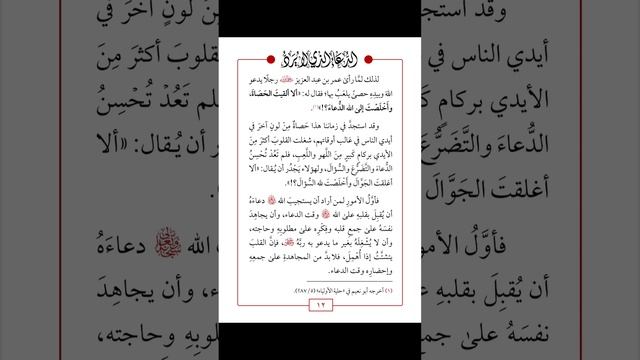 الدُّعَاءُ الَّذِي لَا يُرَدُّ
لذلك لمَّا رأىٰ عمر بن عبد العزيز رجلًا يدعو
اللهَ وبيدِهِ حصىً يلعَبُ بها؛ فقال له: «ألا ألقيتَ الحَصَاةَ،
وأَخلَصْتَ إلى اللهِ الدُّعاءَ؟!»(١).
وقد استجدَّ في زماننا هذا حَصاةٌ مِنْ لونٍ آخرَ في
أيدي الناس في غالب أوقاتهم، شغلت القلوبَ أكثرَ مِنَ
الأيدي بركامٍ كَبيرٍ مِنَ اللَّهوِ واللَّعِبِ، فلم تَعُدْ تُحْسِنُ
الدُّعاءَ والتَّضَرُّعَ والسُّؤالَ، ولهؤلاء يَجْدُر أن يُقال: «ألا
أغلقتَ الجَوَّالَ وأَخلَصْتَ لله السُّؤالَ؟!».
فأوَّلُ الأمورِ لمن أراد أن يستجيبَ الله دعاءَهُ
أن يُقبِلَ بقلبهِ علىٰ الله وقت الدعاء، وأن يجاهِدَ
نفسَهُ علىٰ جمعِ قلبه وفِكْرِه علىٰ مطلوبِهِ وحاجته،
وأن لا يُشْغِلَهُ بغير ما يدعو به ربَّهُ، فإنَّ القلبَ
يتشتَّتُ إذا أُهْمِلَ، فلابدَّ من المجاهدةِ علىٰ جمعِهِ
وإحضارِه وقت الدعاء.
(١) أخرجه أبو نعيم في «حلية الأولياء» (٥/ ٢٨٧).
١٢